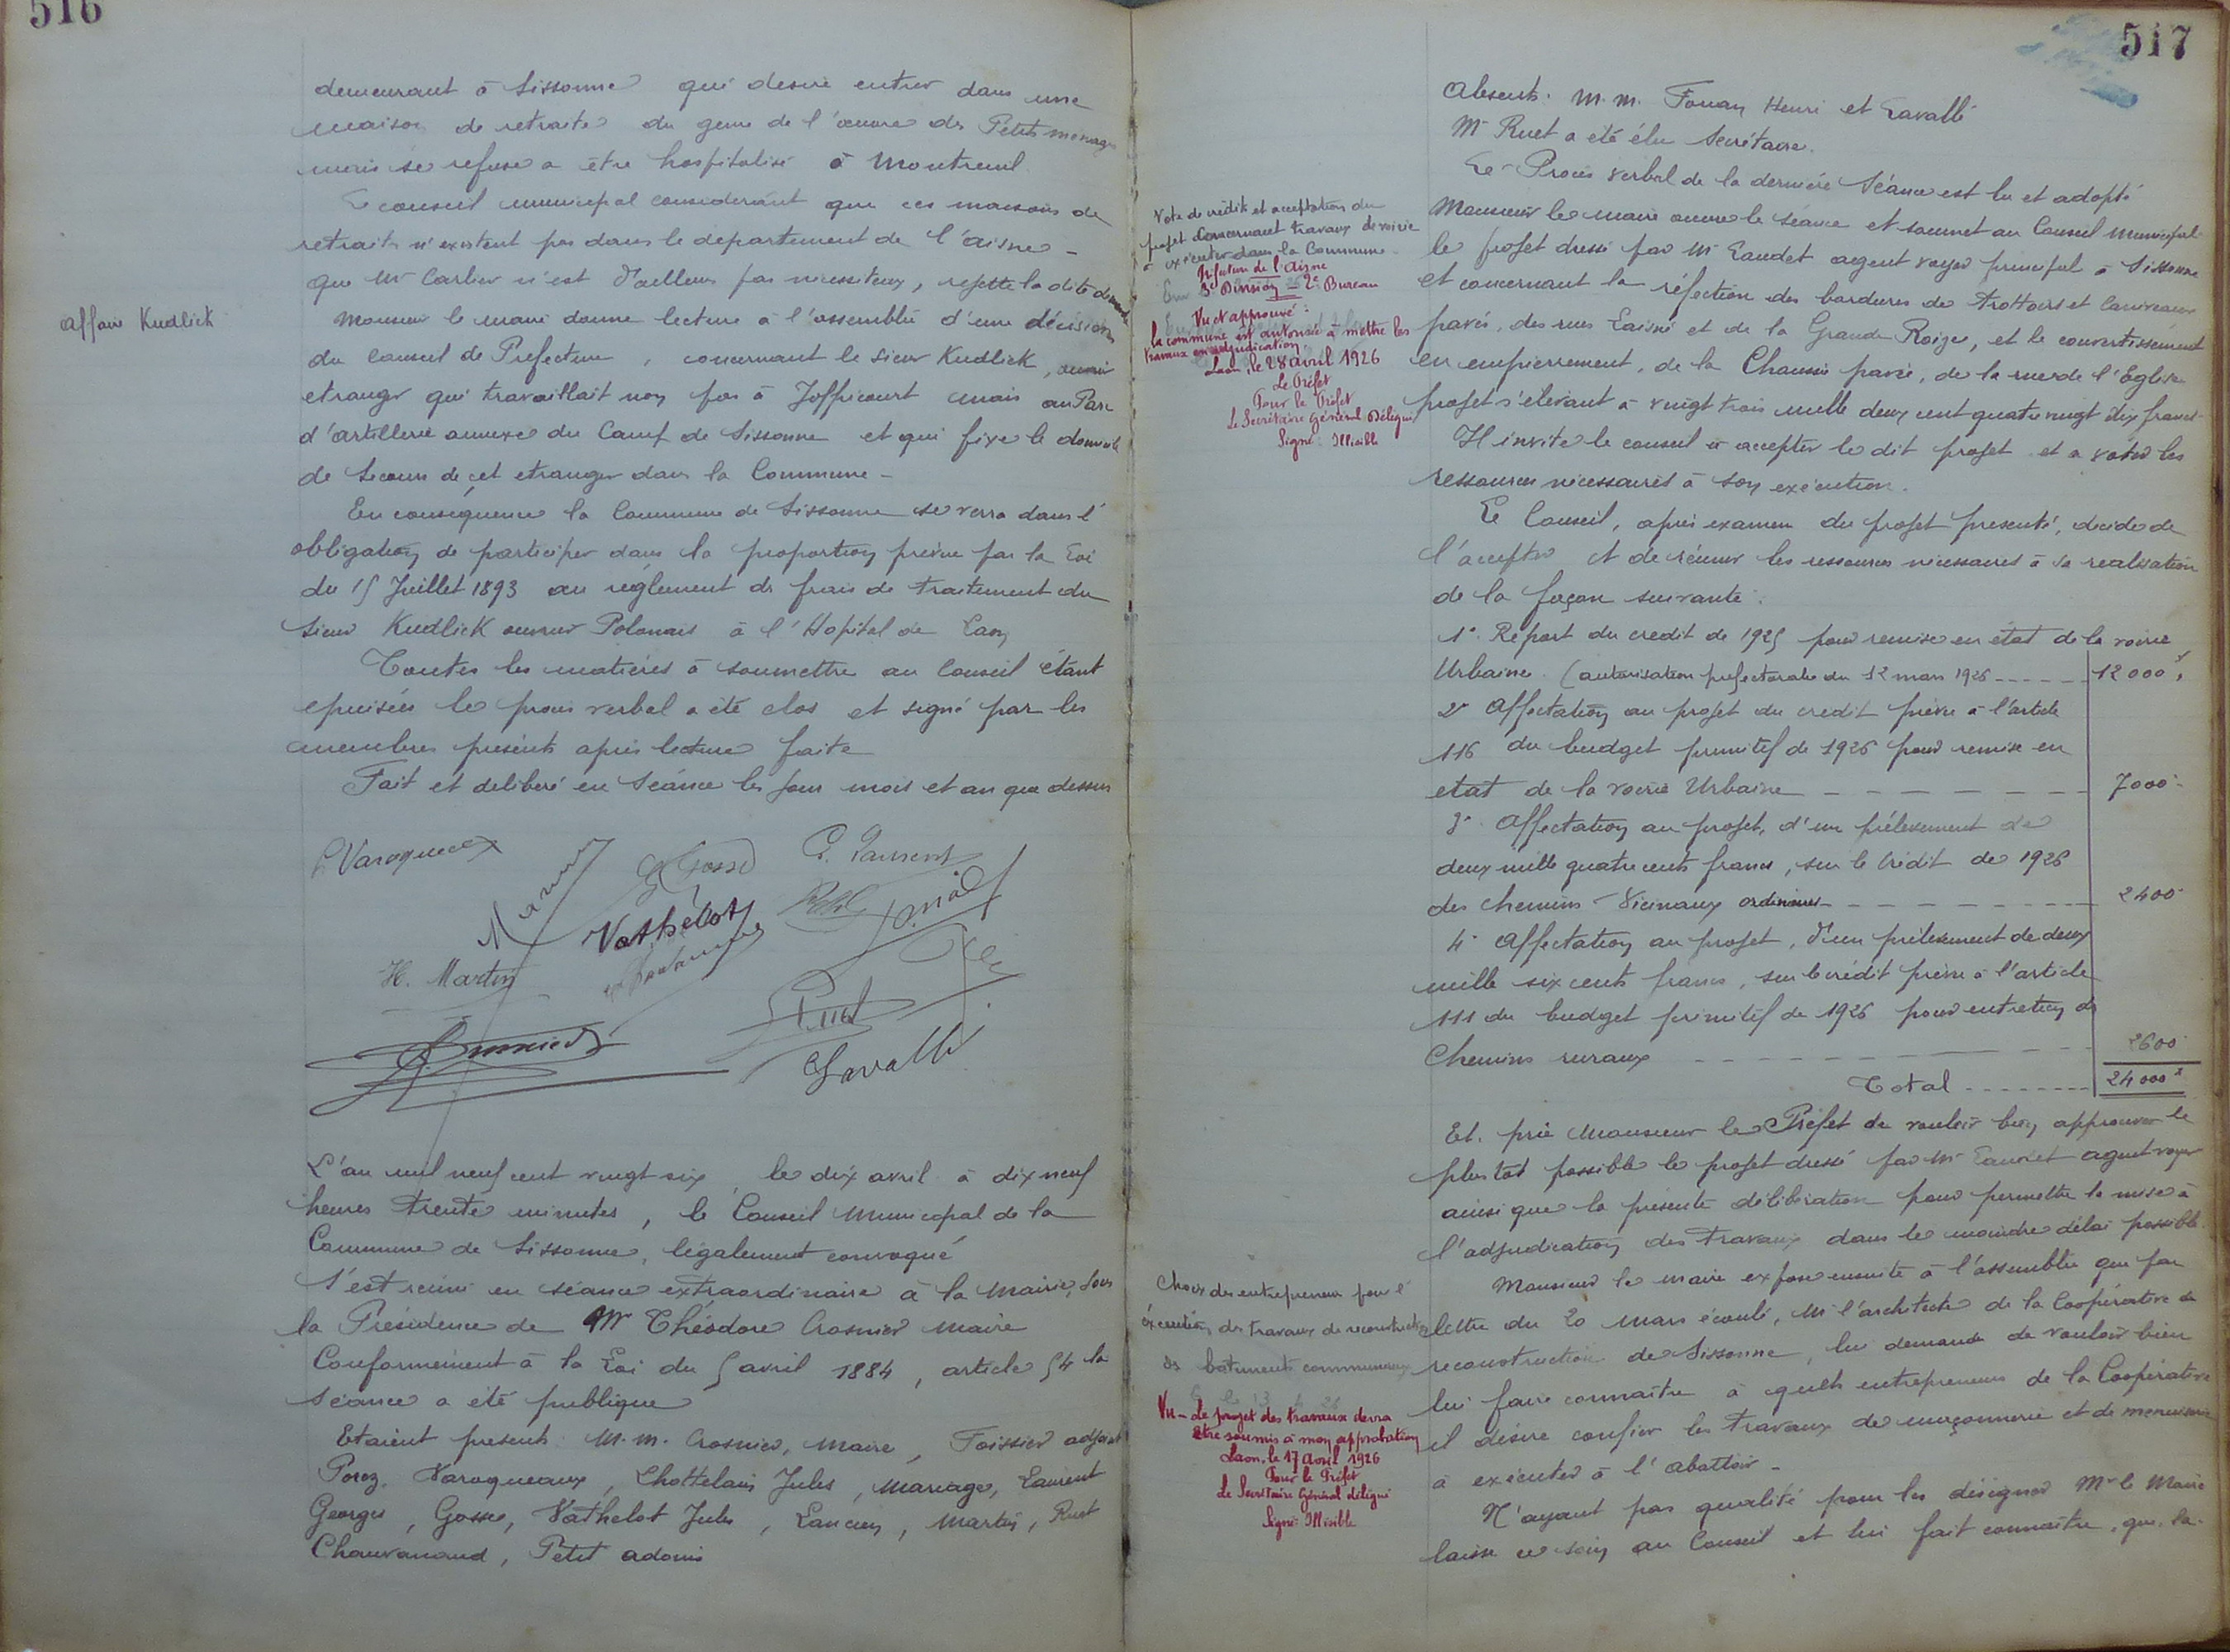 516
demeurant à Sissonne qui desire entrer dans une
maison de retraite du genre de l'œuvre des Petits menages
mais se refuse a être hospitalisé à Montreuil
Le conseil municipal considerant que ces maisons de
retraite n'existent pas dans le departement de l'Aisne -
que Mr Carlier n'est d'ailleurs pas nécessiteux, rejette la dite demande
Affaire Kudlick
Monsieur le maire donne lecture à l'assemblée d'une décision
du Conseil de Prefecture, concernant le sieur Kudlick, ouvrier
etranger qui travaillait non pas à Joffricourt mais au Parc
d'artillerie annexe du Camp de Sissonne et qui fixe le domicile
de Secours de cet etranger dans la Commune -
En conséquence la Commune de Sissonne se verra dans l'
obligation de participer dans la proportion prévue par la Loi
du 15 Juillet 1893 au réglement des frais de traitement du
sieur Kudlick ouvrier Polonais à l'Hopital de Laon
Toutes les matières à soumettre au Conseil étant
epuisées le procès verbal a été clos et signé par les
membres présents après lecture faite
Fait et deliberé en Séance les jour mois et an que dessus
Varoqueaux
G Gosse
G. Laurent
Vathelot
H. Martin
Ruet
Crosnier
Lavallé
L'an mil neuf cent vingt six, le dix avril à dix neuf
heures trente minutes, le Conseil Municipal de la
Commune de Sissonne, légalement convoqué
s'est réuni en séance extraordinaire à la Mairie, sous
la Présidence de Mr Théodore Crosnier Maire
Conformément à la Loi du 5 avril 1884, article 54 la
séance a été publique
Etaient présents M.M. Crosnier, Maire, Foissier adjoint
Poroz, Varoqueaux, Chottelain Jules, Mariage, Laurent
Georges, Gosse, Vathelot Jules, Lancien, Martin, Ruet
Chauvanaud, Petit adonis
517
Absents. M.M. Fouan Henri et Lavallé
Mr Ruet a été élu Secrétaire.
Le Procès verbal de la dernière Séance est lu et adopté
Vote de crédits et acceptation du
projet concernant travaux de voirie
à exécuter dans la Commune
Préfecture de l'Aisne
3e Division - 2e Bureau
Vu et approuvé :
la commune est autorisée à mettre les
travaux en adjudication.
Laon, le 28 avril 1926
Le Préfet
Pour le Préfet
Le Secrétaire Général Délégué
Signé : Illisible
Monsieur le maire ouvre la séance et soumet au Conseil Municipal
le projet dressé par Mr Gaudet agent voyer principal à Sissonne
et concernant la réfection des bordures de trottoirs et caniveaux
pavés, des rues Laisné et de la Grande Roize, et le convertissement
en empierrement, de la Chaussée pavée, de la rue de l'Eglise
projet s'élevant à vingt trois mille deux cent quatre vingt dix francs
Il invite le conseil à accepter le dit projet et a voter les
ressources nécessaires à son exécution.
Le Conseil, après examen du projet présenté, décide de
l'accepter et de réunir les ressources nécessaires à sa realisation
de la façon suivante :
1° Report du crédit de 1925 pour remise en état de la voirie
Urbaine. (autorisation préfectorale du 12 mars 1926 ----- 12 000f
2° Affectation au projet du crédit prévu à l'article
116 du budget primitif de 1926 pour remise en
etat de la voirie Urbaine ------- 7000
3° Affectation au projet, d'un prélèvement de
deux mille quatre cents francs, sur le crédit de 1926
des chemins Vicinaux ordinaires ------- 2400
4° Affectation au projet, d'un prélèvement de deux
mille six cents francs, sur le crédit prévu à l'article
111 du budget primitif de 1926 pour entretien des
Chemins ruraux ------- 2600
Total ------- 24 000f
Et prie Monsieur le Préfet de vouloir bien approuver le
plus tôt possible le projet dressé par Mr Gaudet agent voyer
ainsi que la présente délibération pour permettre la mise à
l'adjudication des travaux dans le moindre délai possible.
Choix des entrepreneurs pour l'
éxécution des travaux de reconstruction
des batiments communaux
Vu - Le projet des travaux devra
être soumis à mon approbation
Laon, le 17 Avril 1926
Pour le Préfet
Le Secrétaire Général délégué
Signé: Illisible
Monsieur le maire expose ensuite à l'assemblée que par
lettre du 20 Mars écoulé, Mr l'architecte de la Coopérative de
reconstruction de Sissonne, lui demande de vouloir bien
lui faire connaître à quels entrepreneurs de la Coopérative
il désire confier les travaux de maçonnerie et de menuiserie
à exécuter à l'abattoir -
N'ayant pas qualité pour les désigner Mr le Maire
laisse ce soin au Conseil et lui fait connaître, que, la